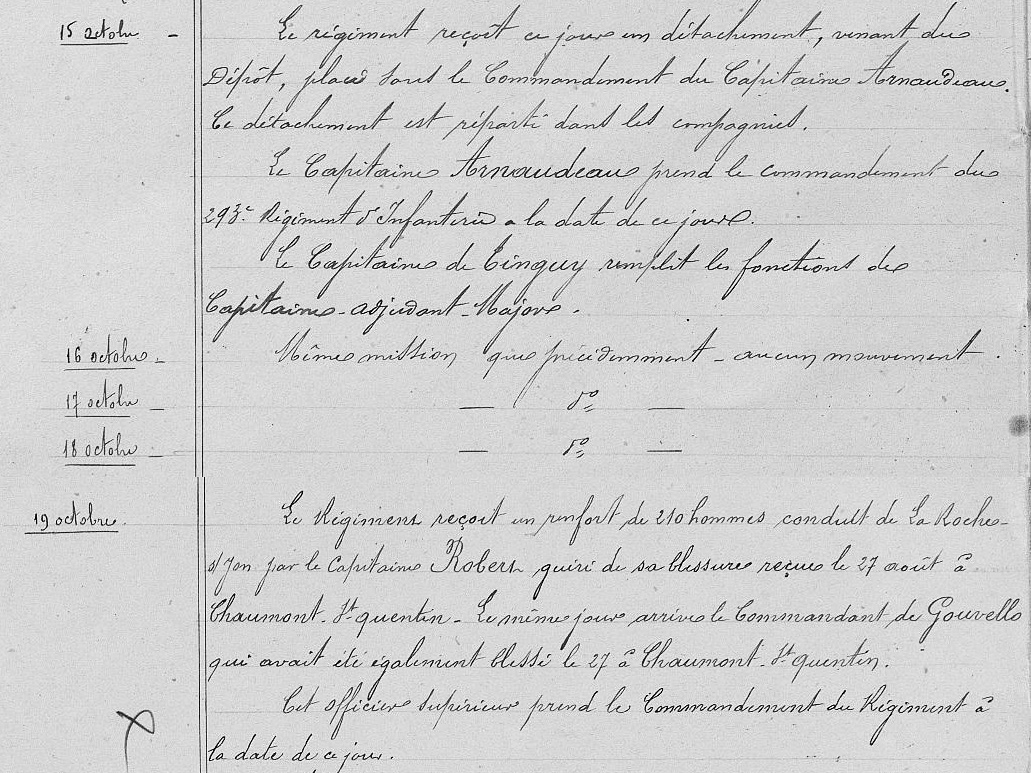 15 octobre - Le régiment reçoit ce jour un détachement, venant du
Dépôt, placé sous le Commandement du Capitaine Arnaudeau.
Ce détachement est réparti dans les compagnies.
Le Capitaine Arnaudeau prend le commandement du
293e Régiment d'Infanterie a la date de ce jour.
Le Capitaine de Tinguy remplit les fonctions de
Capitaine-adjudant-Major.
16 octobre - Même mission que précédemment - aucun mouvement.
17 octobre - — do —
18 octobre - — do —
19 octobre. Le Régiment reçoit un renfort de 210 hommes conduit de La Roche-
s/Yon par le Capitaine Robert guéri de sa blessure reçue le 27 août à
Chaumont-St-quentin - Le même jour arrive le Commandant de Gouvello
qui avait été également blessé le 27 à Chaumont-St-quentin.
Cet officier supérieur prend le Commandement du Régiment à
la date de ce jour.